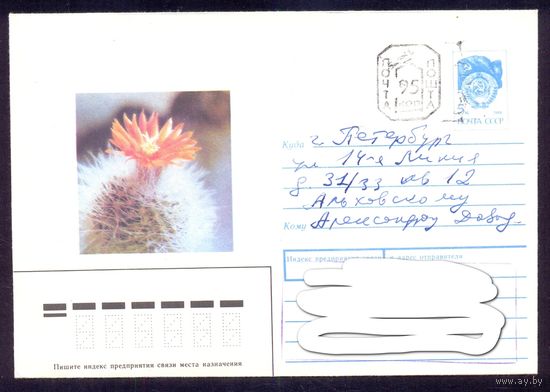 ПОЧТА
95
коп
ПОШТА
ПОЧТА СССР
Куда г. Петербург
ул 14-я Линия
д. 31/33 кв 12
Альховскому
Кому Александру Давыд.
Индекс предприятия связи и адрес отправителя
Пишите индекс предприятия связи места назначения
www.ay.by